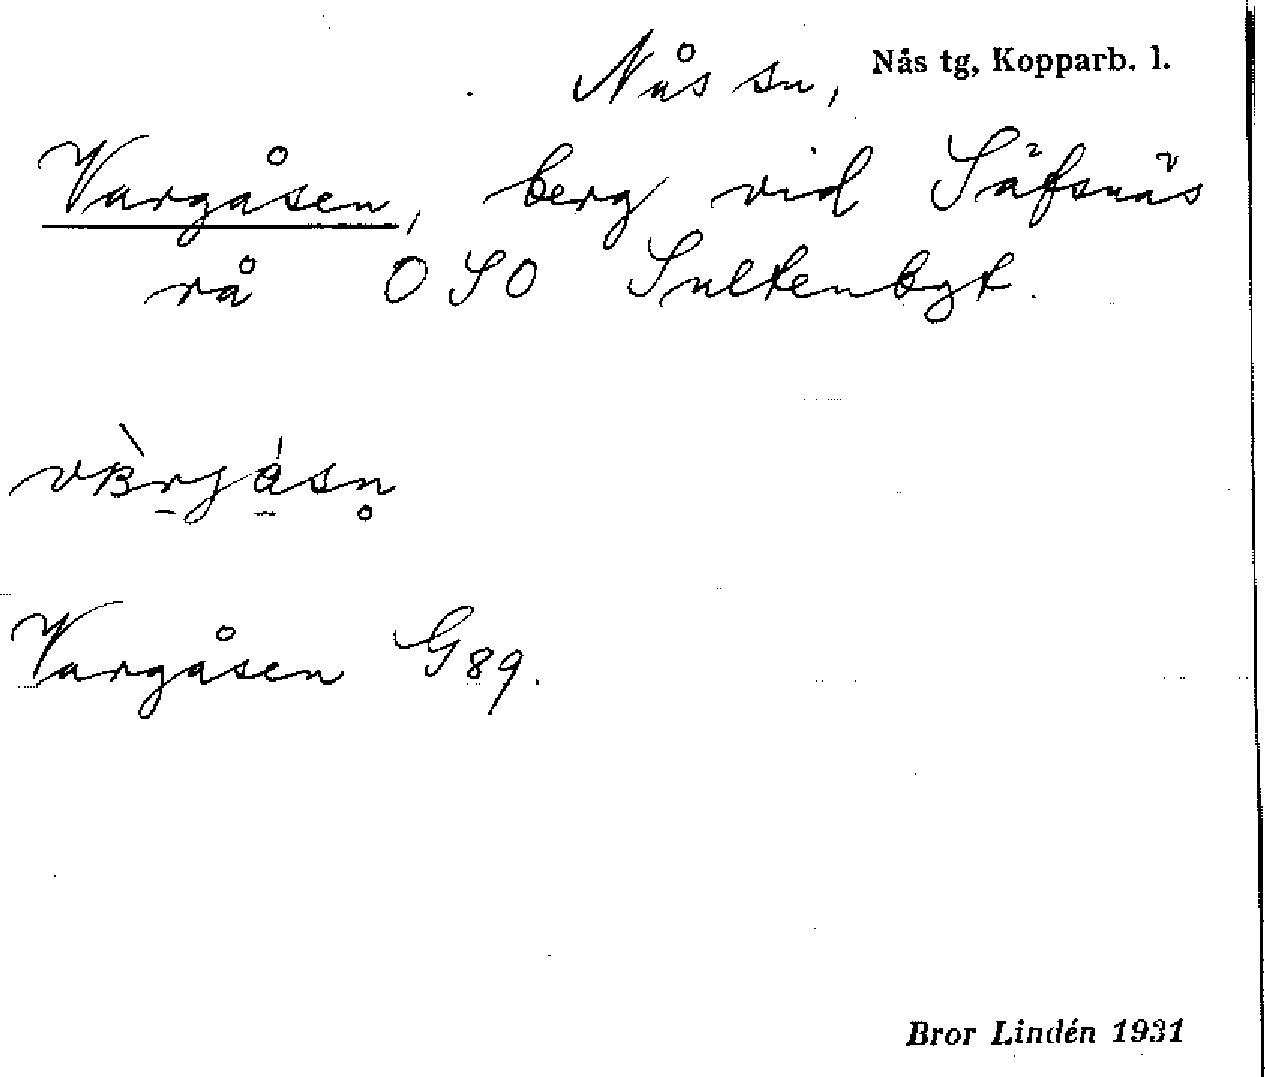 Nås sn, Nås tg, Kopparb. l.
Vargåsen, berg vid Säfsnäs
rå OSO Sultenbyt.
Vargåsen G89.
Bror Lindén 1931